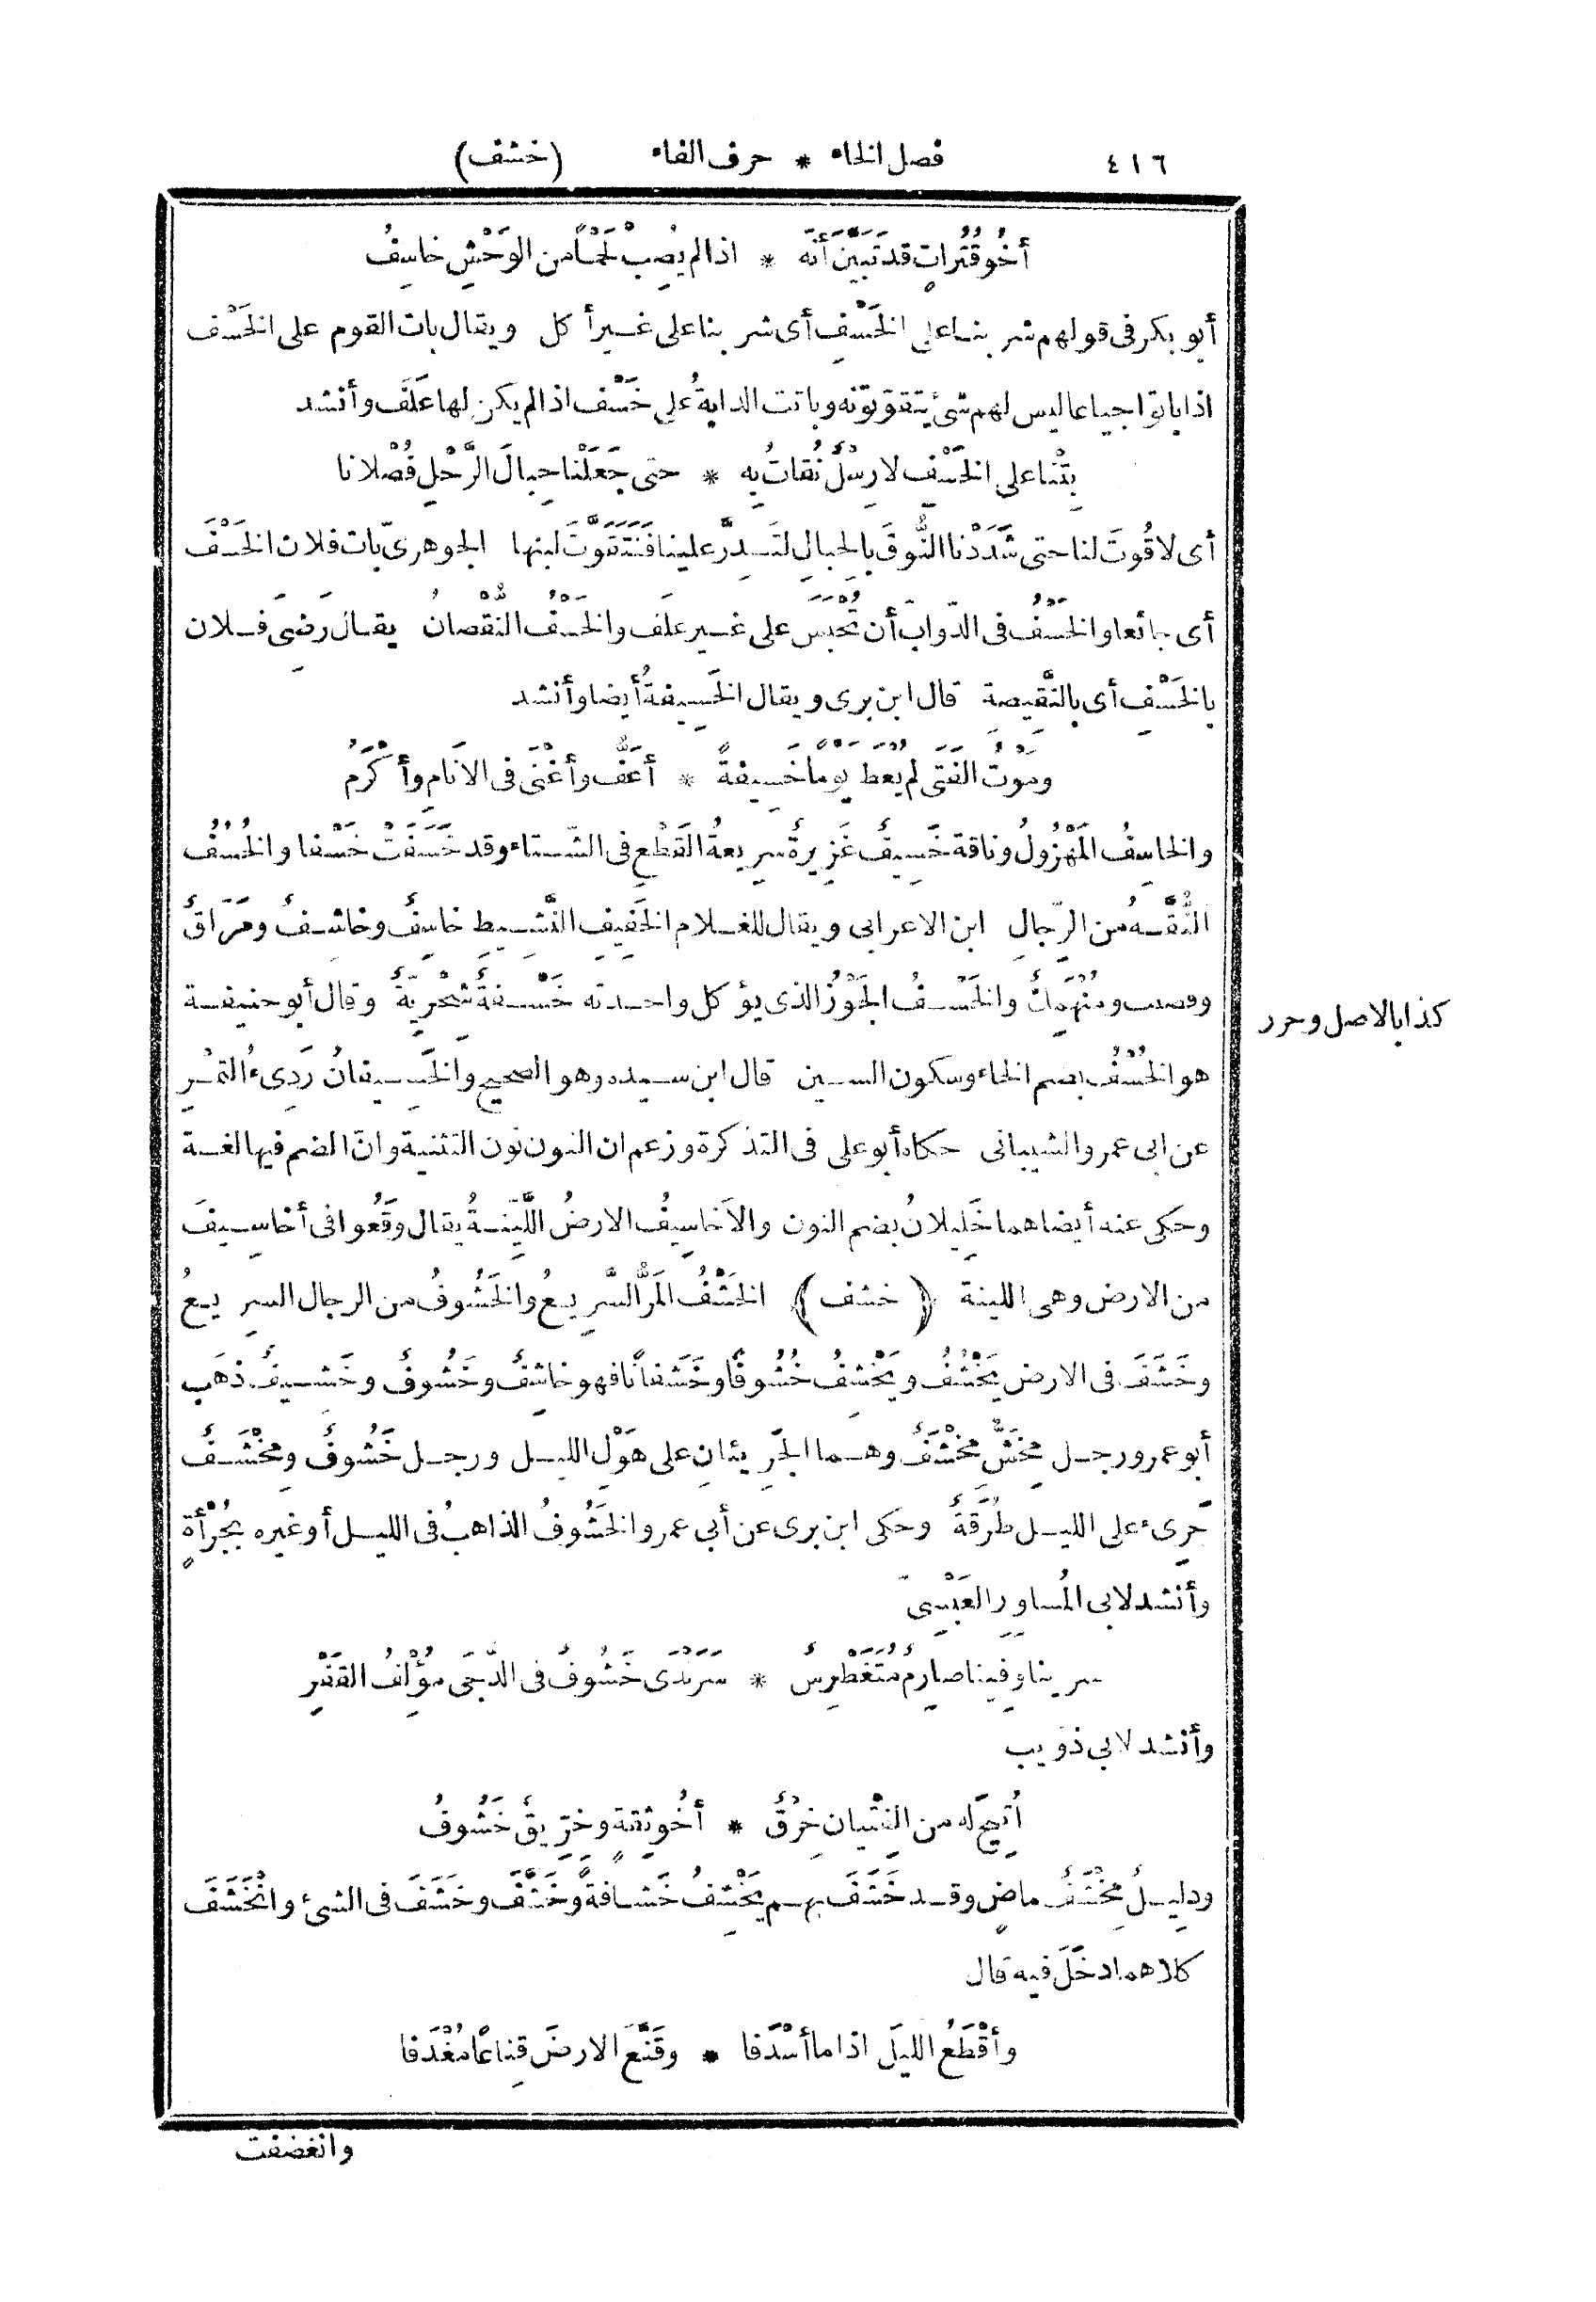 ٤١٦ فصل الخاء * حرف الفاء (خشف)
أَخُو قُتُراتٍ قد تَبَيَّنَ أَنَّه * اذا لم يُصِبْ لَحْمًا من الوَحْشِ خاسِفُ
أبو بكر فى قولهم شربنا على الخَسْفِ أى شربنا على غير أكل ويقال بات القوم على الخَسْف
اذا باتوا جياعا ليس لهم شئ يتقوّتونه وباتت الدابةُ على خَسْف اذا لم يكن لها عَلَف وأنشد
بِتْنا على الخَسْفِ لا رِسْلٌ نُقاتُ به * حتى جَعَلْنا حِبالَ الرَّحْلِ فُصْلانا
أى لا قُوتَ لنا حتى شَدَدْنا النُّوقَ بالحِبالِ لتَدِرَّ علينا فَنَتَقَوَّتَ لبنها الجوهرىّ بات فلان الخَسْفَ
أى جائعا والخَسْفُ فى الدّوابّ أن تُحْبَسَ على غير علَف والخَسْفُ النُّقْصانُ يقال رَضِىَ فلان
بالخَسْفِ أى بالنَّقِيصةِ قال ابن برى ويقال الخَسِيفةُ أيضا وأنشد
ومَوْتُ الفَتَى لم يُعْطَ يَوْمًا خَسِيفةً * أَعَفُّ وأَغْنَى فى الأَنامِ وأَكْرَمُ
والخاسِفُ المَهْزُولُ وناقة خَسِيفٌ غَزِيرةٌ سريعةُ القَطْعِ فى الشّتاء وقد خَسَفَتْ خَسْفا والخُسُفُ
النُّقَّهُ من الرِّجالِ ابن الاعرابى ويقال للغلام الخَفِيفِ النَّشِيطِ خاسِفٌ وخاشِفٌ ومَرّاقٌ
ومُنْهَمِكٌ والخَسْفُ الجَوْزُ الذى يؤكل واحدته خَسْفةٌ شِحْرِيّةٌ وقال أبو حنيفة
كذا بالاصل وحرر
هو الخُسْفُ بضم الخاء وسكون السين قال ابن سيده وهو الصحيح والخَسِيفانُ رَدِىءُ التمْرِ
عن ابى عمرو الشيبانى حكاه أبو على فى التذكرة وزعم ان النون نون التثنية وانّ الضم فيها لغة
وحكى عنه أيضا هما خَلِيلانُ بضم النون والأَخاسِيفُ الارضُ اللَّيِّنةُ يقال وقَعُوا فى أخاسِيفَ
من الارض وهى اللينة (خشف) الخَشْفُ المَرُّ السَّرِيعُ والخَشُوفُ من الرجال السريعُ
وخَشَفَ فى الارض يَخْشُفُ ويَخْشِفُ خُشُوفًا وخَشَفانًا فهو خاشِفٌ وخَشُوفٌ وخَشِيفٌ ذهَب
أبو عمرو رجل مِخَشٌّ مِخْشَفٌ وهما الجَرِيئانِ على هَوْلِ الليل ورجل خَشُوفٌ ومِخْشَفٌ
جَرِىء على الليل طُرَقةٌ وحكى ابن برى عن أبى عمرو الخَشُوفُ الذاهبُ فى الليل أو غيره بجُرْأةٍ
وأنشد لابى المُساوِرِ العَبْسِىّ
سرينا وفِينا صارِمٌ مُتَغَطْرِسٌ * سَرَنْدَى خَشُوفٌ فى الدُّجَى مُؤْلِفُ القَفْرِ
وأنشد لابى ذؤيب
أُتِيحَ له من الفِتْيانِ خِرْقٌ * أَخُو ثِقةٍ وخِرِّيقٌ خَشُوفُ
ودليلٌ مِخْشَفٌ ماضٍ وقد خَشَفَ بهم يَخْشِفُ خَشافةً وخَشَّفَ وخَشَفَ فى الشئ وانْخَشَفَ
كلاهما دخَلَ فيه قال
وأَقْطَعُ الليلَ اذا ما أَسْدَفا * وقَنَّعَ الارضَ قِناعًا مُغْدَفا
وانغضفت